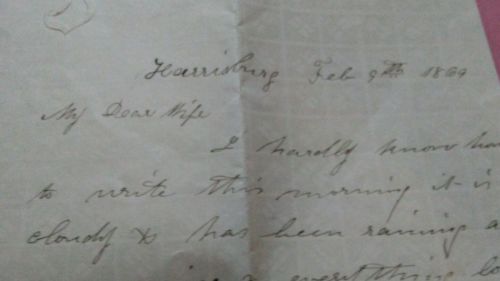 Harrisburg Feb 9th 1869
My Dear Wife
I hardly know
to write this morning it is
cloudy & has been raining
& everything